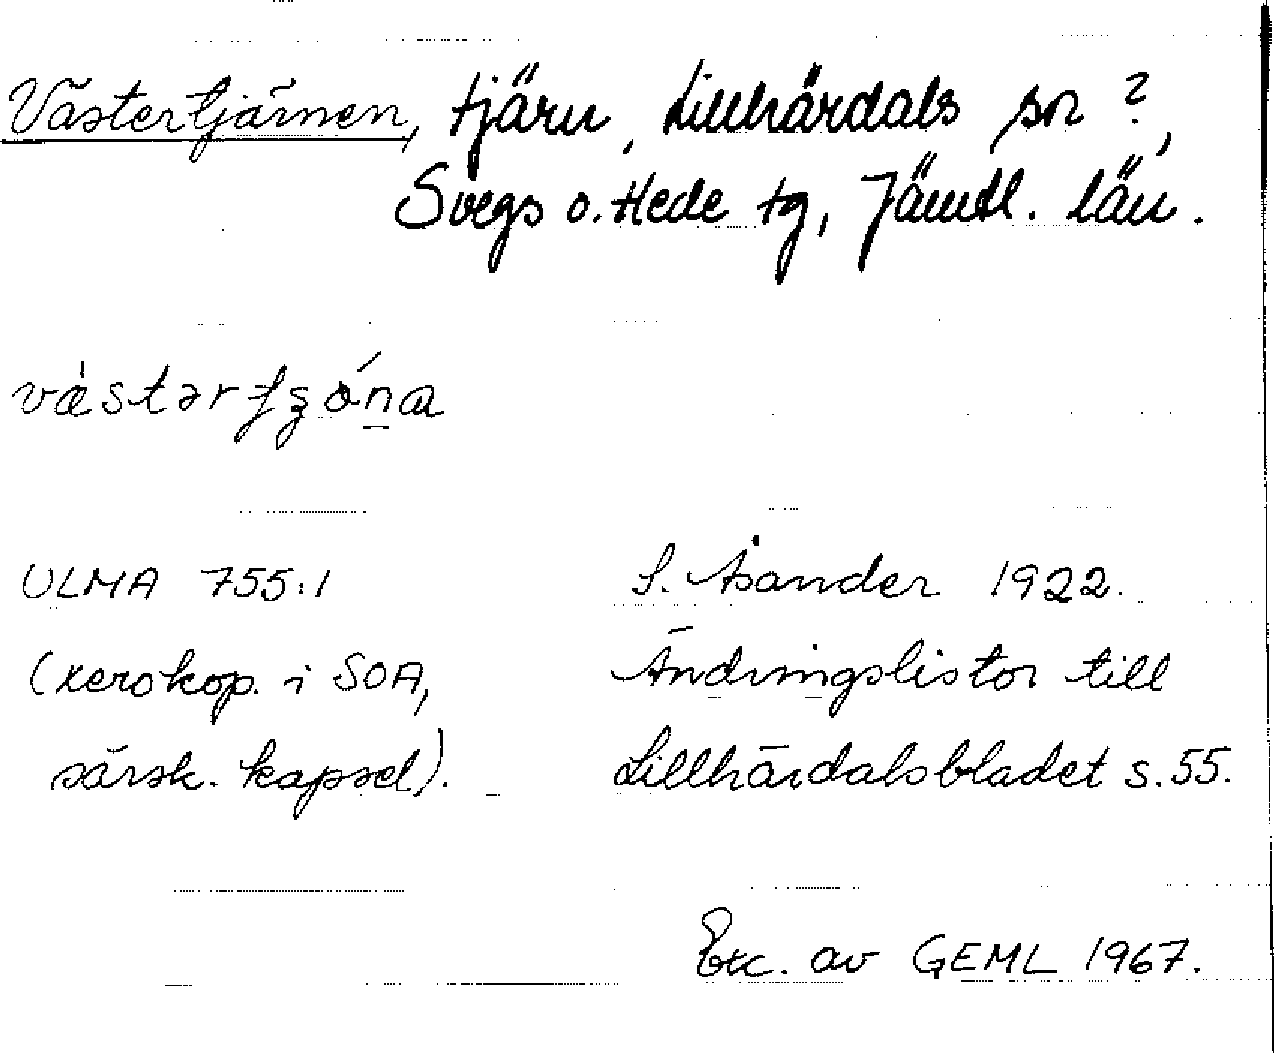 Västertjärnen, tjärn, Lillhärdals sn ?,
Svegs o. Hede tg, Jämtl. län.
ULMA 755:1
S. Åsander 1922.
(xerokop. i SOA,
Ändringslistor till
särsk. kapsel).
Lillhärdalsbladet s. 55.
Exc. av GEML 1967.